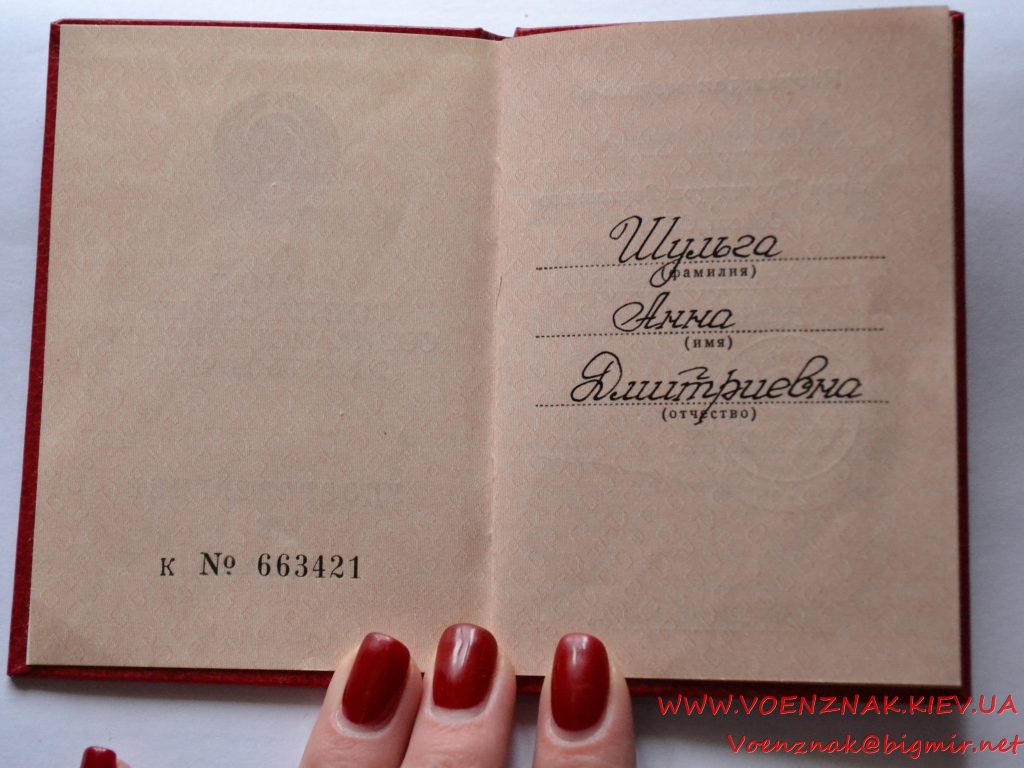 К № 663421
Шульга
(фамилия)
Анна
(имя)
Дмитриевна
(отчество)
WWW.VOENZNAK.KIEV.UA
Voenznak@bigmir.net